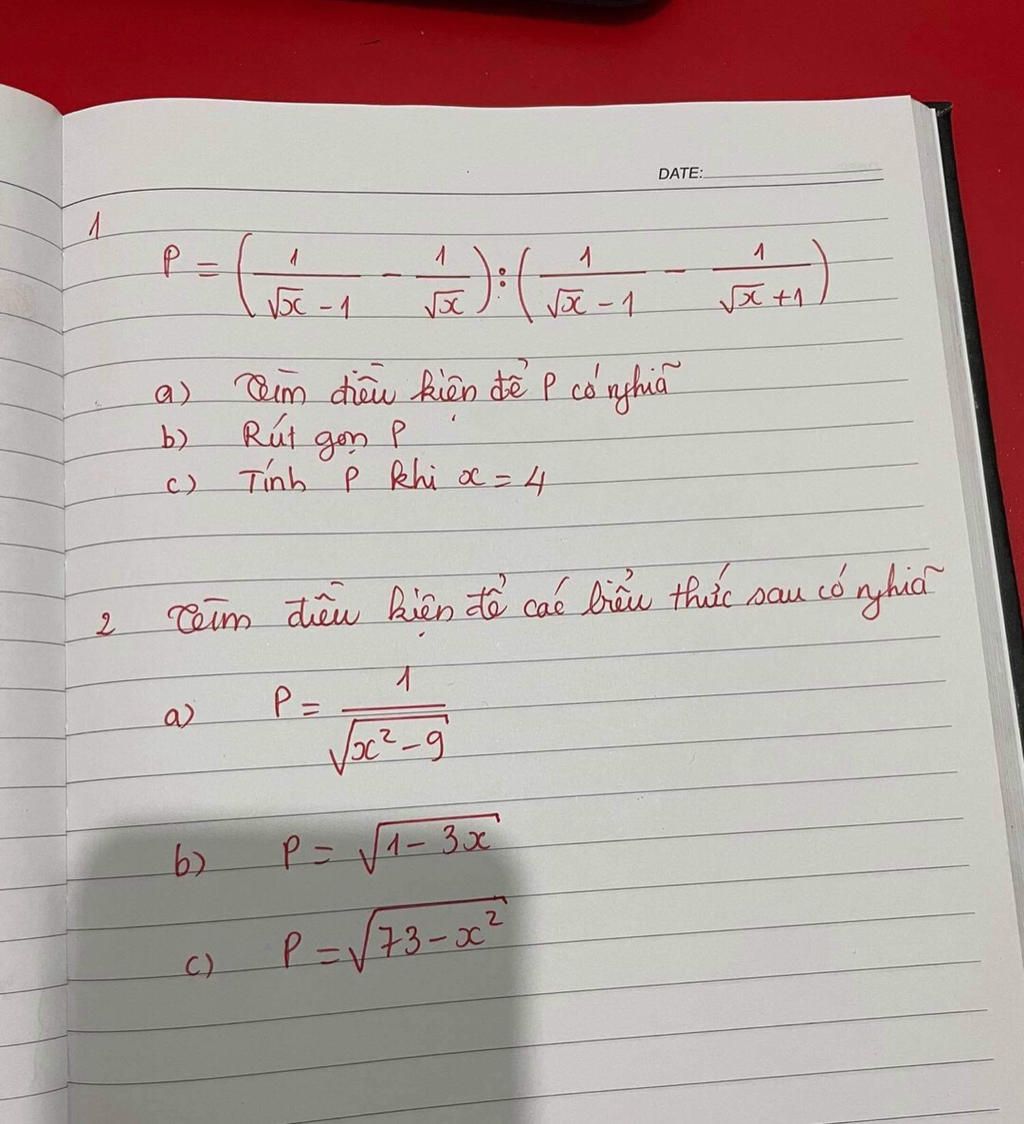 DATE:
1
P = (1/(√x - 1) - 1/√x) : (1/(√x - 1) - 1/(√x + 1))
a) Tìm điều kiện để P có nghĩa
b) Rút gọn P
c) Tính P khi x = 4
2 Tìm điều kiện để các biểu thức sau có nghĩa
a) P = 1/√(x² - 9)
b) P = √(1 - 3x)
c) P = √(73 - x²)